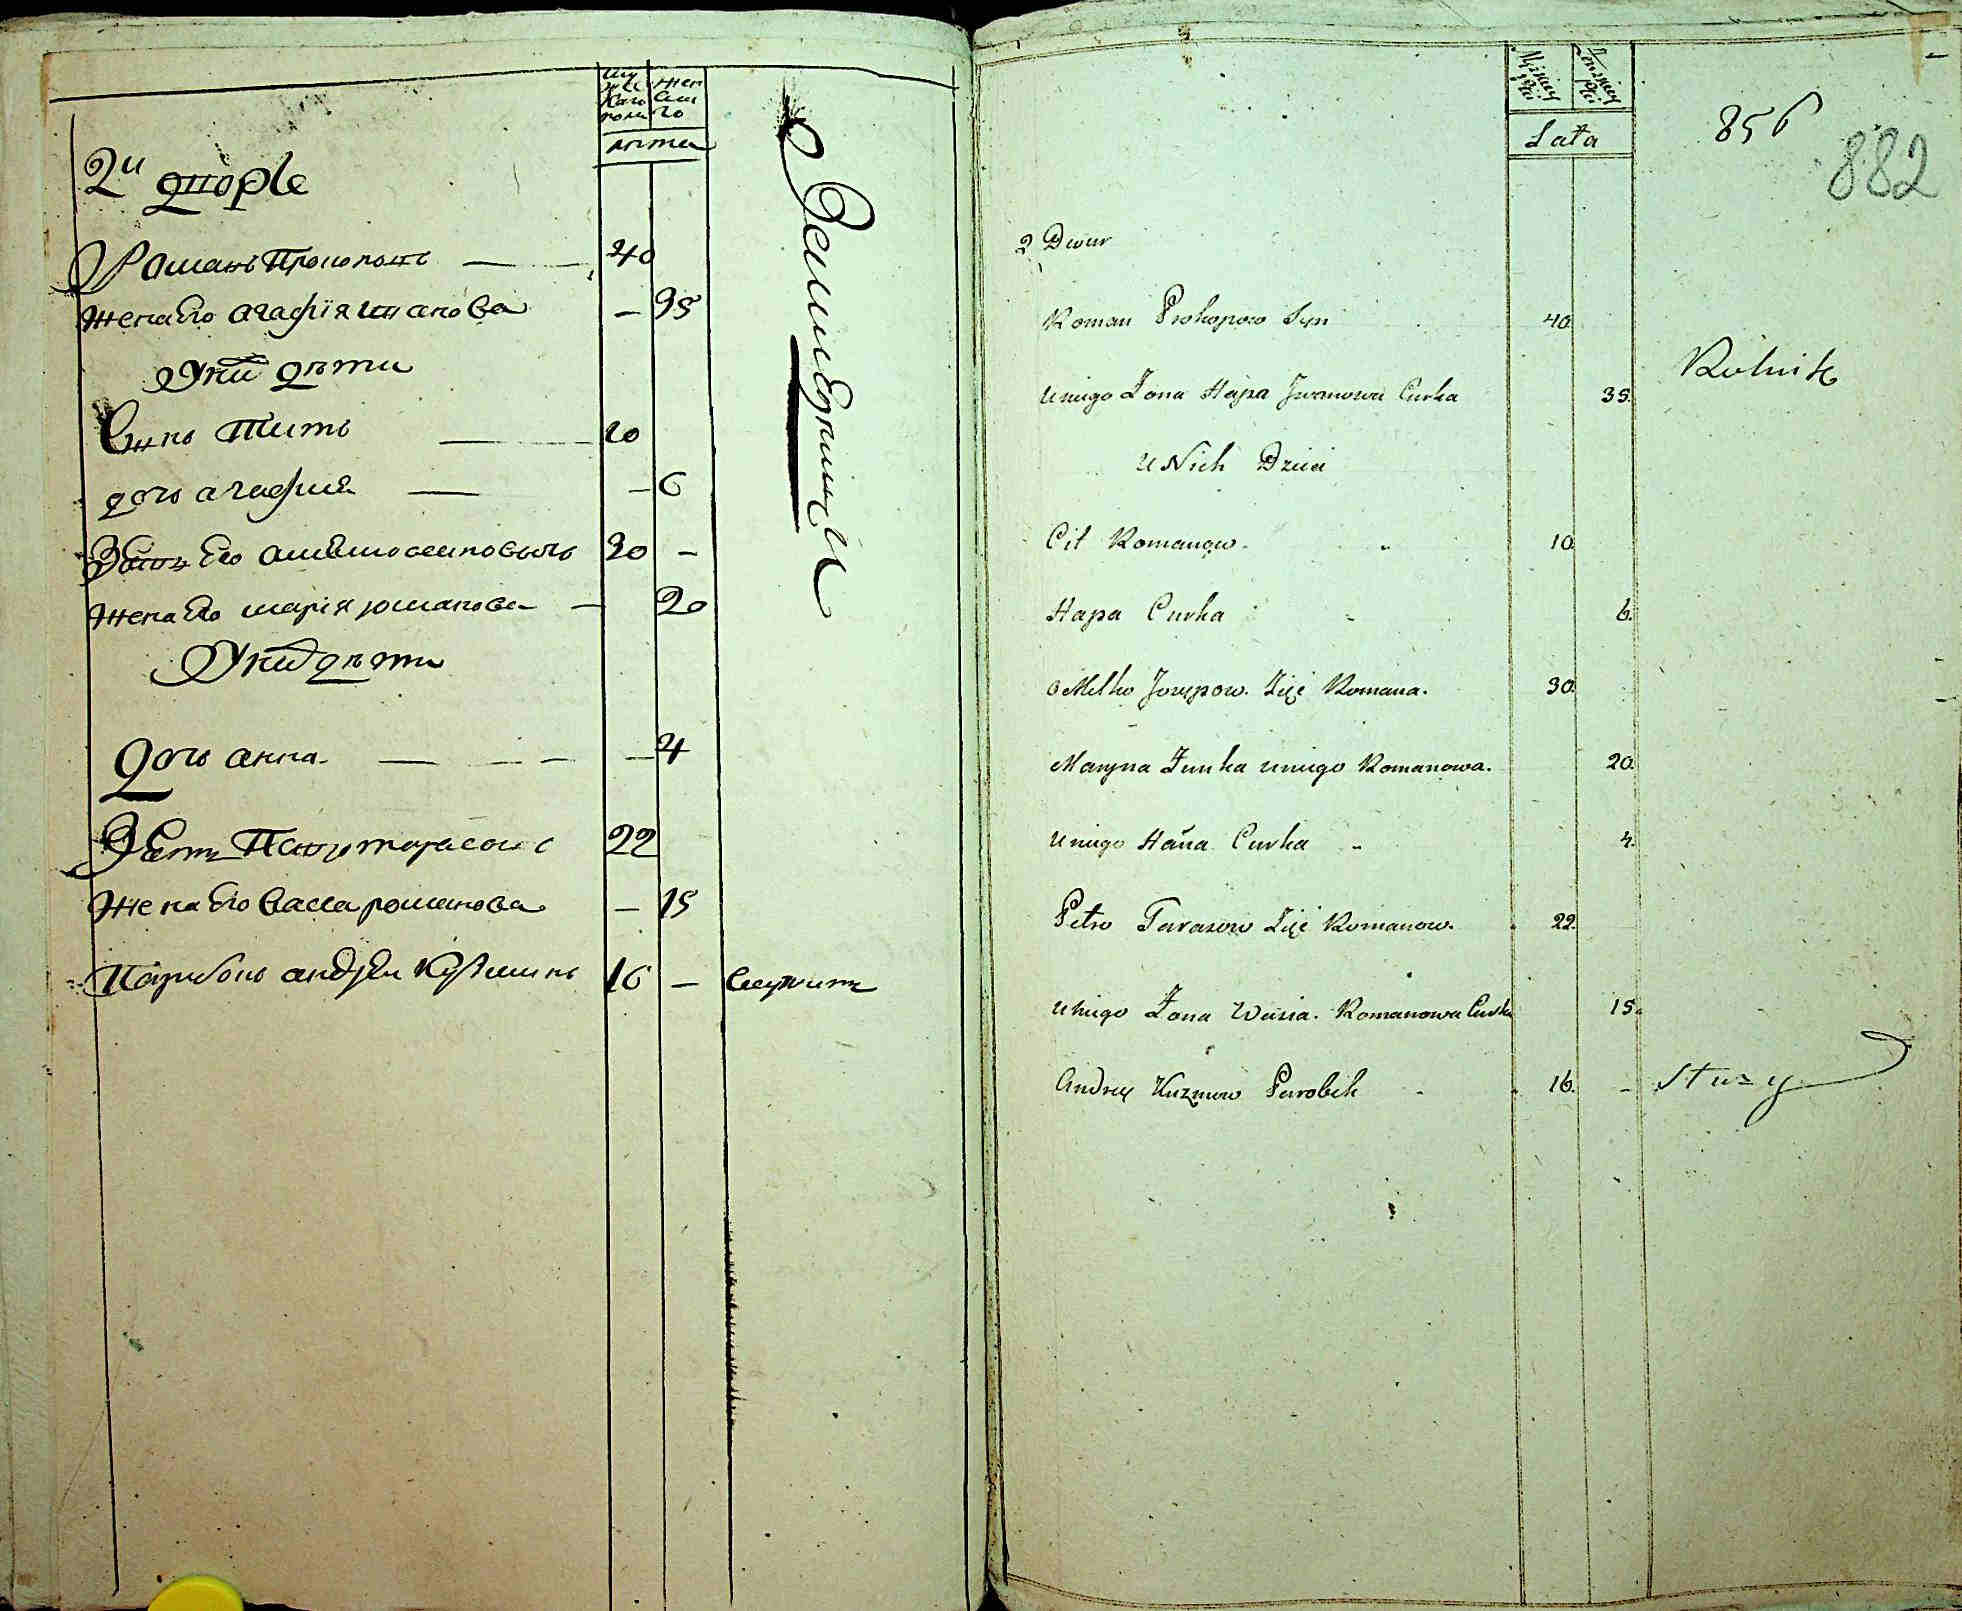 му
жеска
го
пола
жен
ска
го
лѣта
2й дворе
Романъ Прокоповъ 40
жена Его агафiя иванова — 35
Унихъ дѣти
Сынъ Титъ 10
дочъ агафия — 6
Зать Его амелко осиповичъ 30 —
жена Его марiя романова — 20
Унихъ дѣти
Дочъ анна — 4
Зать Петръ тарасовъ 22
жена Его васса романова — 15
Паробокъ андрѣй кузминъ 16 — Служитъ
Земледелецъ
Męzkiey płci
Żenskiey płci
Lata
856
882
2 Dwur
Roman Prokopow Syn 40.
Uniego Żona Hapa Jwanowa Curka 35.
Rolnik
U Nich Dzieci
Cit Romanow. 10.
Hapa Curka 6.
Omelko Jozypow. Zięć Romana. 30.
Maryna Żunka uniego Romanowa. 20.
Uniego Hańa Curka 4.
Petro Tarasow Zięć Romanow. 22.
Uniego Żona Wasia. Romanowa Curka 15.
Andrey Kuzmow Parobek 16. — Służy